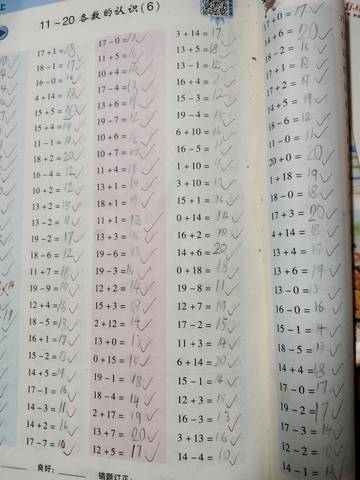 11~20各数的认识(6)
17+1=18
18-1=17
16-0=16
4+14=18
15+5=20
15+4=19
11-1=10
18+2=20
16-4=12
10+2=12
13+2=15
13-2=11
19-2=17
18-6=12
11+7=18
19-9=10
12+4=16
18-5=13
16+1=17
15-2=13
14+5=19
17-1=16
14-3=11
14+2=16
17-7=10
17-0=17
11+5=16
10+4=14
17-4=13
13+6=19
19-7=12
10+6=16
10+7=17
11+4=15
13+1=14
18+1=19
11+1=12
13+3=16
19-6=13
19-3=16
12+2=14
15+3=18
2+12=14
13+0=13
0+15=15
19-1=18
18-4=14
2+17=19
13+7=20
12+5=17
3+14=17
13+5=18
13-1=12
16+4=
15-3=12
19-4=15
6+10=16
16-5=11
1+10=11
3+10=
15+1=16
0+14=14
16+2=18
14+6=20
0+18=18
19-8=11
12+7=19
17-2=15
11+3=14
6+14=20
15-1=14
12+3=15
16-3=13
3+13=16
14-4=10
17+0=17
14+2=16
18-2=16
17+1=18
17+2=19
14+5=19
18-6=12
11-0=11
20+0=20
1+18=19
18-0=18
17+3=20
4+14=18
13+4=17
13+6=19
13-0=13
16-0=16
15-1=14
18-5=13
14+4=18
17-0=17
19-2=17
17-3=14
12-2=10
14-1=13
良好:
错题订正: